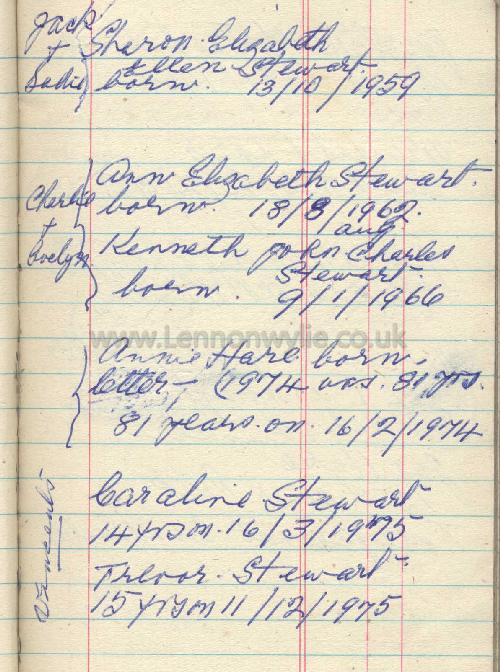 Jack
+
Sadie
Sharon Elizabeth
Ellen Stewart.
born. 13/10/1959
Charlie
+
Evelyn
Ann Elizabeth Stewart.
born. 18/8/1962.
aug
Kenneth John Charles
Stewart.
born. 9/1/1966
www.Lennonwylie.co.uk
Annie Hare born.
letter - (1974 was. 81 yrs.
81 years. on. 16/2/1974
Caraline Stewart
14 yrs on. 16/3/1975
Trevor. Stewart
15 yrs on 11/12/1975